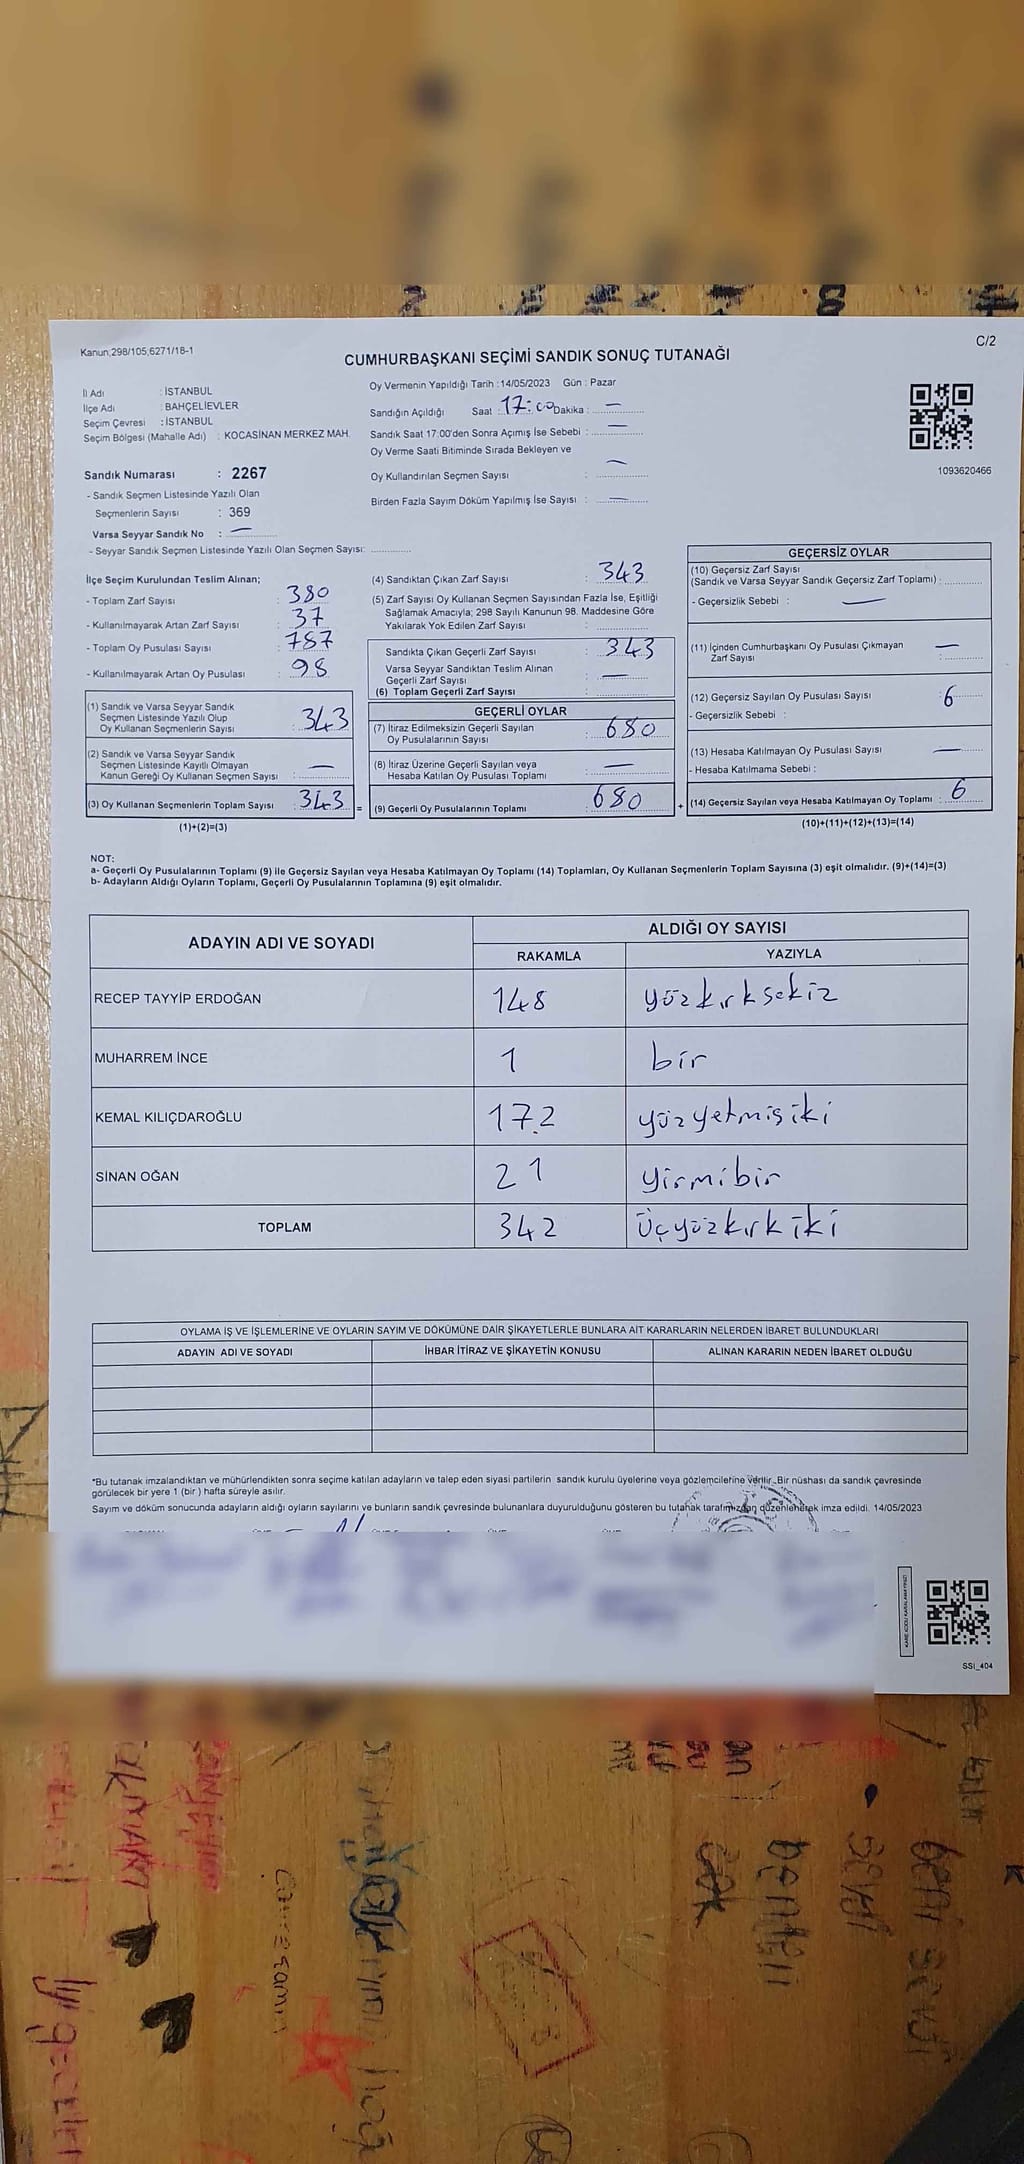 Kanun;298/105,6271/18-1
C/2
CUMHURBAŞKANI SEÇİMİ SANDIK SONUÇ TUTANAĞI
İl Adı : İSTANBUL
İlçe Adı : BAHÇELİEVLER
Seçim Çevresi : İSTANBUL
Seçim Bölgesi (Mahalle Adı) : KOCASİNAN MERKEZ MAH.
Sandık Numarası : 2267
- Sandık Seçmen Listesinde Yazılı Olan
Seçmenlerin Sayısı : 369
Varsa Seyyar Sandık No : —
- Seyyar Sandık Seçmen Listesinde Yazılı Olan Seçmen Sayısı: ............
Oy Vermenin Yapıldığı Tarih :14/05/2023 Gün : Pazar
Sandığın Açıldığı Saat : 17:00 Dakika : —
Sandık Saat 17:00'den Sonra Açımış İse Sebebi : —
Oy Verme Saati Bitiminde Sırada Bekleyen ve
Oy Kullandırılan Seçmen Sayısı : —
Birden Fazla Sayım Döküm Yapılmış İse Sayısı : —
1093620466
İlçe Seçim Kurulundan Teslim Alınan;
- Toplam Zarf Sayısı : 380
- Kullanılmayarak Artan Zarf Sayısı : 37
- Toplam Oy Pusulası Sayısı : 787
- Kullanılmayarak Artan Oy Pusulası : 98
(1) Sandık ve Varsa Seyyar Sandık
Seçmen Listesinde Yazılı Olup
Oy Kullanan Seçmenlerin Sayısı : 343
(2) Sandık ve Varsa Seyyar Sandık
Seçmen Listesinde Kayıtlı Olmayan
Kanun Gereği Oy Kullanan Seçmen Sayısı : —
(3) Oy Kullanan Seçmenlerin Toplam Sayısı : 343 =
(1)+(2)=(3)
(4) Sandıktan Çıkan Zarf Sayısı : 343
(5) Zarf Sayısı Oy Kullanan Seçmen Sayısından Fazla İse, Eşitliği
Sağlamak Amacıyla; 298 Sayılı Kanunun 98. Maddesine Göre
Yakılarak Yok Edilen Zarf Sayısı :
Sandıkta Çıkan Geçerli Zarf Sayısı : 343
Varsa Seyyar Sandıktan Teslim Alınan
Geçerli Zarf Sayısı : —
(6) Toplam Geçerli Zarf Sayısı :
GEÇERLİ OYLAR
(7) İtiraz Edilmeksizin Geçerli Sayılan
Oy Pusulalarının Sayısı : 680
(8) İtiraz Üzerine Geçerli Sayılan veya
Hesaba Katılan Oy Pusulası Toplamı : —
(9) Geçerli Oy Pusulalarının Toplamı : 680 +
GEÇERSİZ OYLAR
(10) Geçersiz Zarf Sayısı
(Sandık ve Varsa Seyyar Sandık Geçersiz Zarf Toplamı) :
- Geçersizlik Sebebi : —
(11) İçinden Cumhurbaşkanı Oy Pusulası Çıkmayan
Zarf Sayısı : —
(12) Geçersiz Sayılan Oy Pusulası Sayısı : 6
- Geçersizlik Sebebi :
(13) Hesaba Katılmayan Oy Pusulası Sayısı : —
- Hesaba Katılmama Sebebi :
(14) Geçersiz Sayılan veya Hesaba Katılmayan Oy Toplamı : 6
(10)+(11)+(12)+(13)=(14)
NOT:
a- Geçerli Oy Pusulalarının Toplamı (9) ile Geçersiz Sayılan veya Hesaba Katılmayan Oy Toplamı (14) Toplamları, Oy Kullanan Seçmenlerin Toplam Sayısına (3) eşit olmalıdır. (9)+(14)=(3)
b- Adayların Aldığı Oyların Toplamı, Geçerli Oy Pusulalarının Toplamına (9) eşit olmalıdır.
ADAYIN ADI VE SOYADI
ALDIĞI OY SAYISI
RAKAMLA YAZIYLA
RECEP TAYYİP ERDOĞAN 148 yüzkırksekiz
MUHARREM İNCE 1 bir
KEMAL KILIÇDAROĞLU 172 yüzyetmişiki
SİNAN OĞAN 21 yirmibir
TOPLAM 342 Üçyüzkırkiki
OYLAMA İŞ VE İŞLEMLERİNE VE OYLARIN SAYIM VE DÖKÜMÜNE DAİR ŞİKAYETLERLE BUNLARA AİT KARARLARIN NELERDEN İBARET BULUNDUKLARI
ADAYIN ADI VE SOYADI İHBAR İTİRAZ VE ŞİKAYETİN KONUSU ALINAN KARARIN NEDEN İBARET OLDUĞU
*Bu tutanak imzalandıktan ve mühürlendikten sonra seçime katılan adayların ve talep eden siyasi partilerin sandık kurulu üyelerine veya gözlemcilerine verilir. Bir nüshası da sandık çevresinde
görülecek bir yere 1 (bir ) hafta süreyle asılır.
Sayım ve döküm sonucunda adayların aldığı oyların sayılarını ve bunların sandık çevresinde bulunanlara duyurulduğunu gösteren bu tutanak tarafımızdan düzenlenerek imza edildi. 14/05/2023
SSİ_404